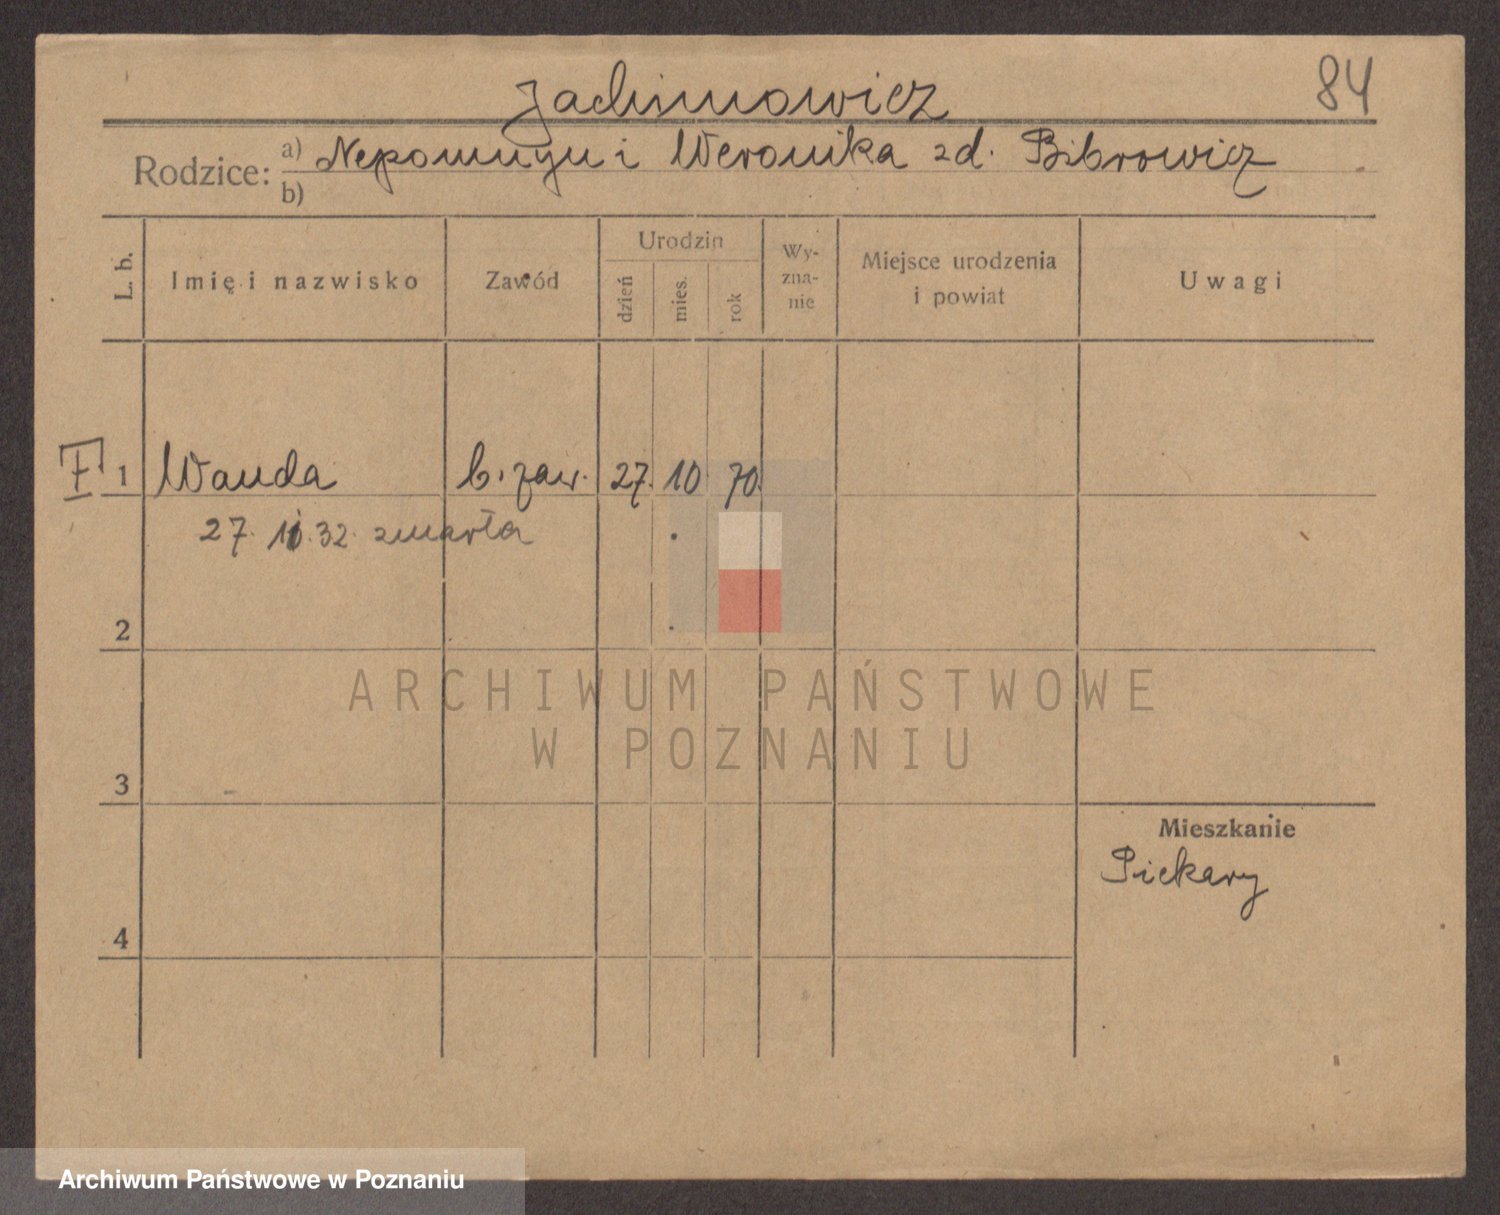 84
Jachimowicz
Rodzice: a) Nepomucyn i Weronika zd. Bibrowicz
b)
L. b.
Imię i nazwisko
Zawód
Urodzin
dzień
mies.
rok
Wy-
zna-
nie
Miejsce urodzenia
i powiat
Uwagi
1 Wanda b. zaw. 27. 10 70.
27. 32. zmarła
2
ARCHIWUM PAŃSTWOWE
W POZNANIU
3
Mieszkanie
Piekary
4
Archiwum Państwowe w Poznaniu